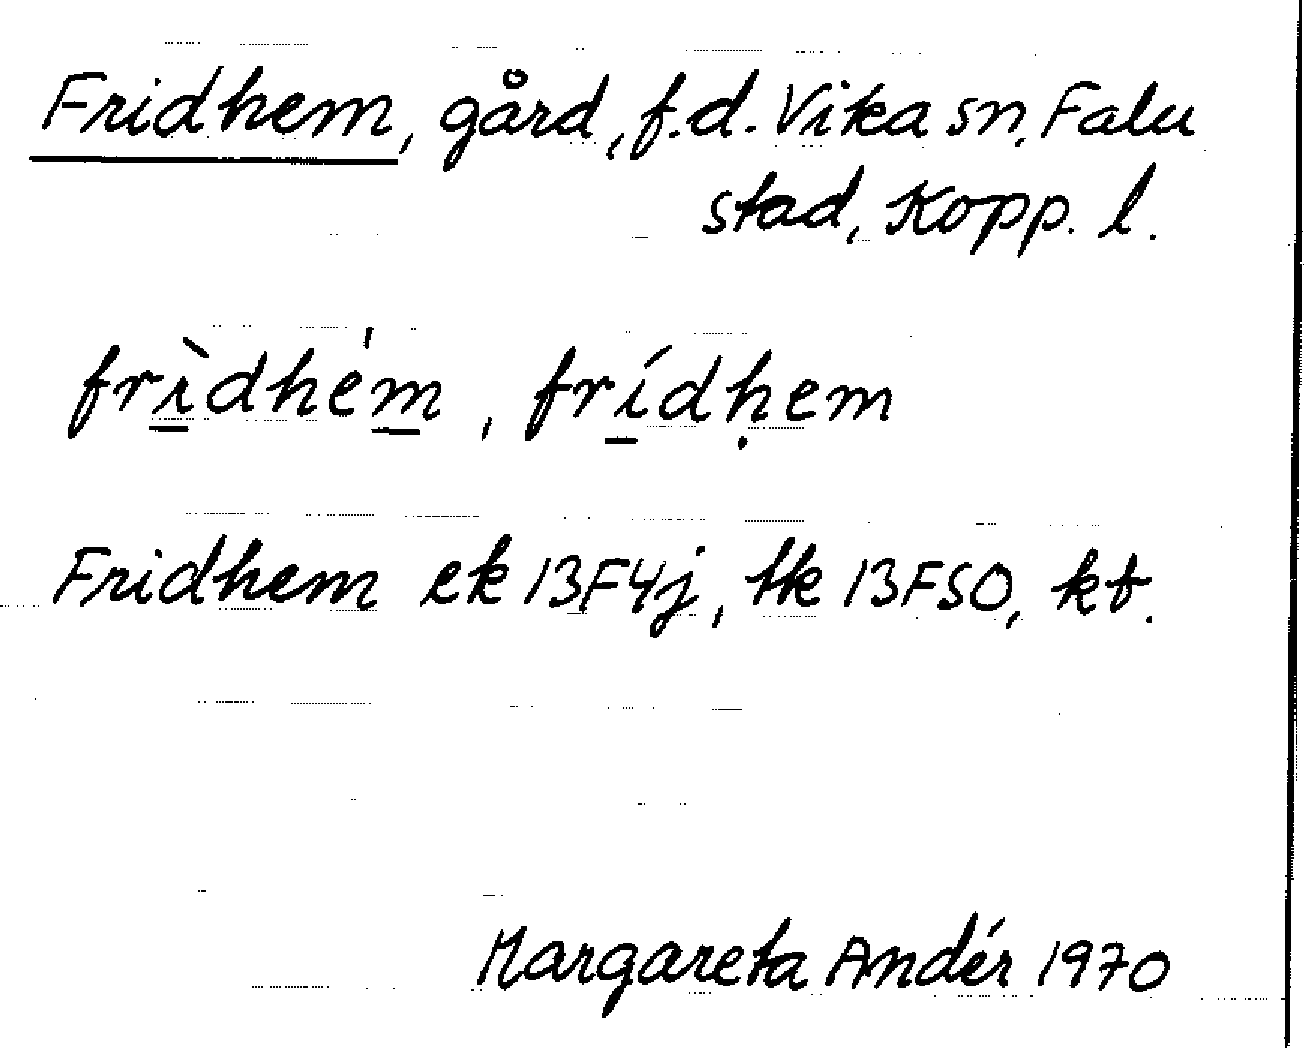 Fridhem, gård, f.d. Vika sn, Falu
stad, Kopp. l.
frìdhém, frídḥem
Fridhem ek 13F4j, tk 13FSO, kt.
Margareta Andér 1970